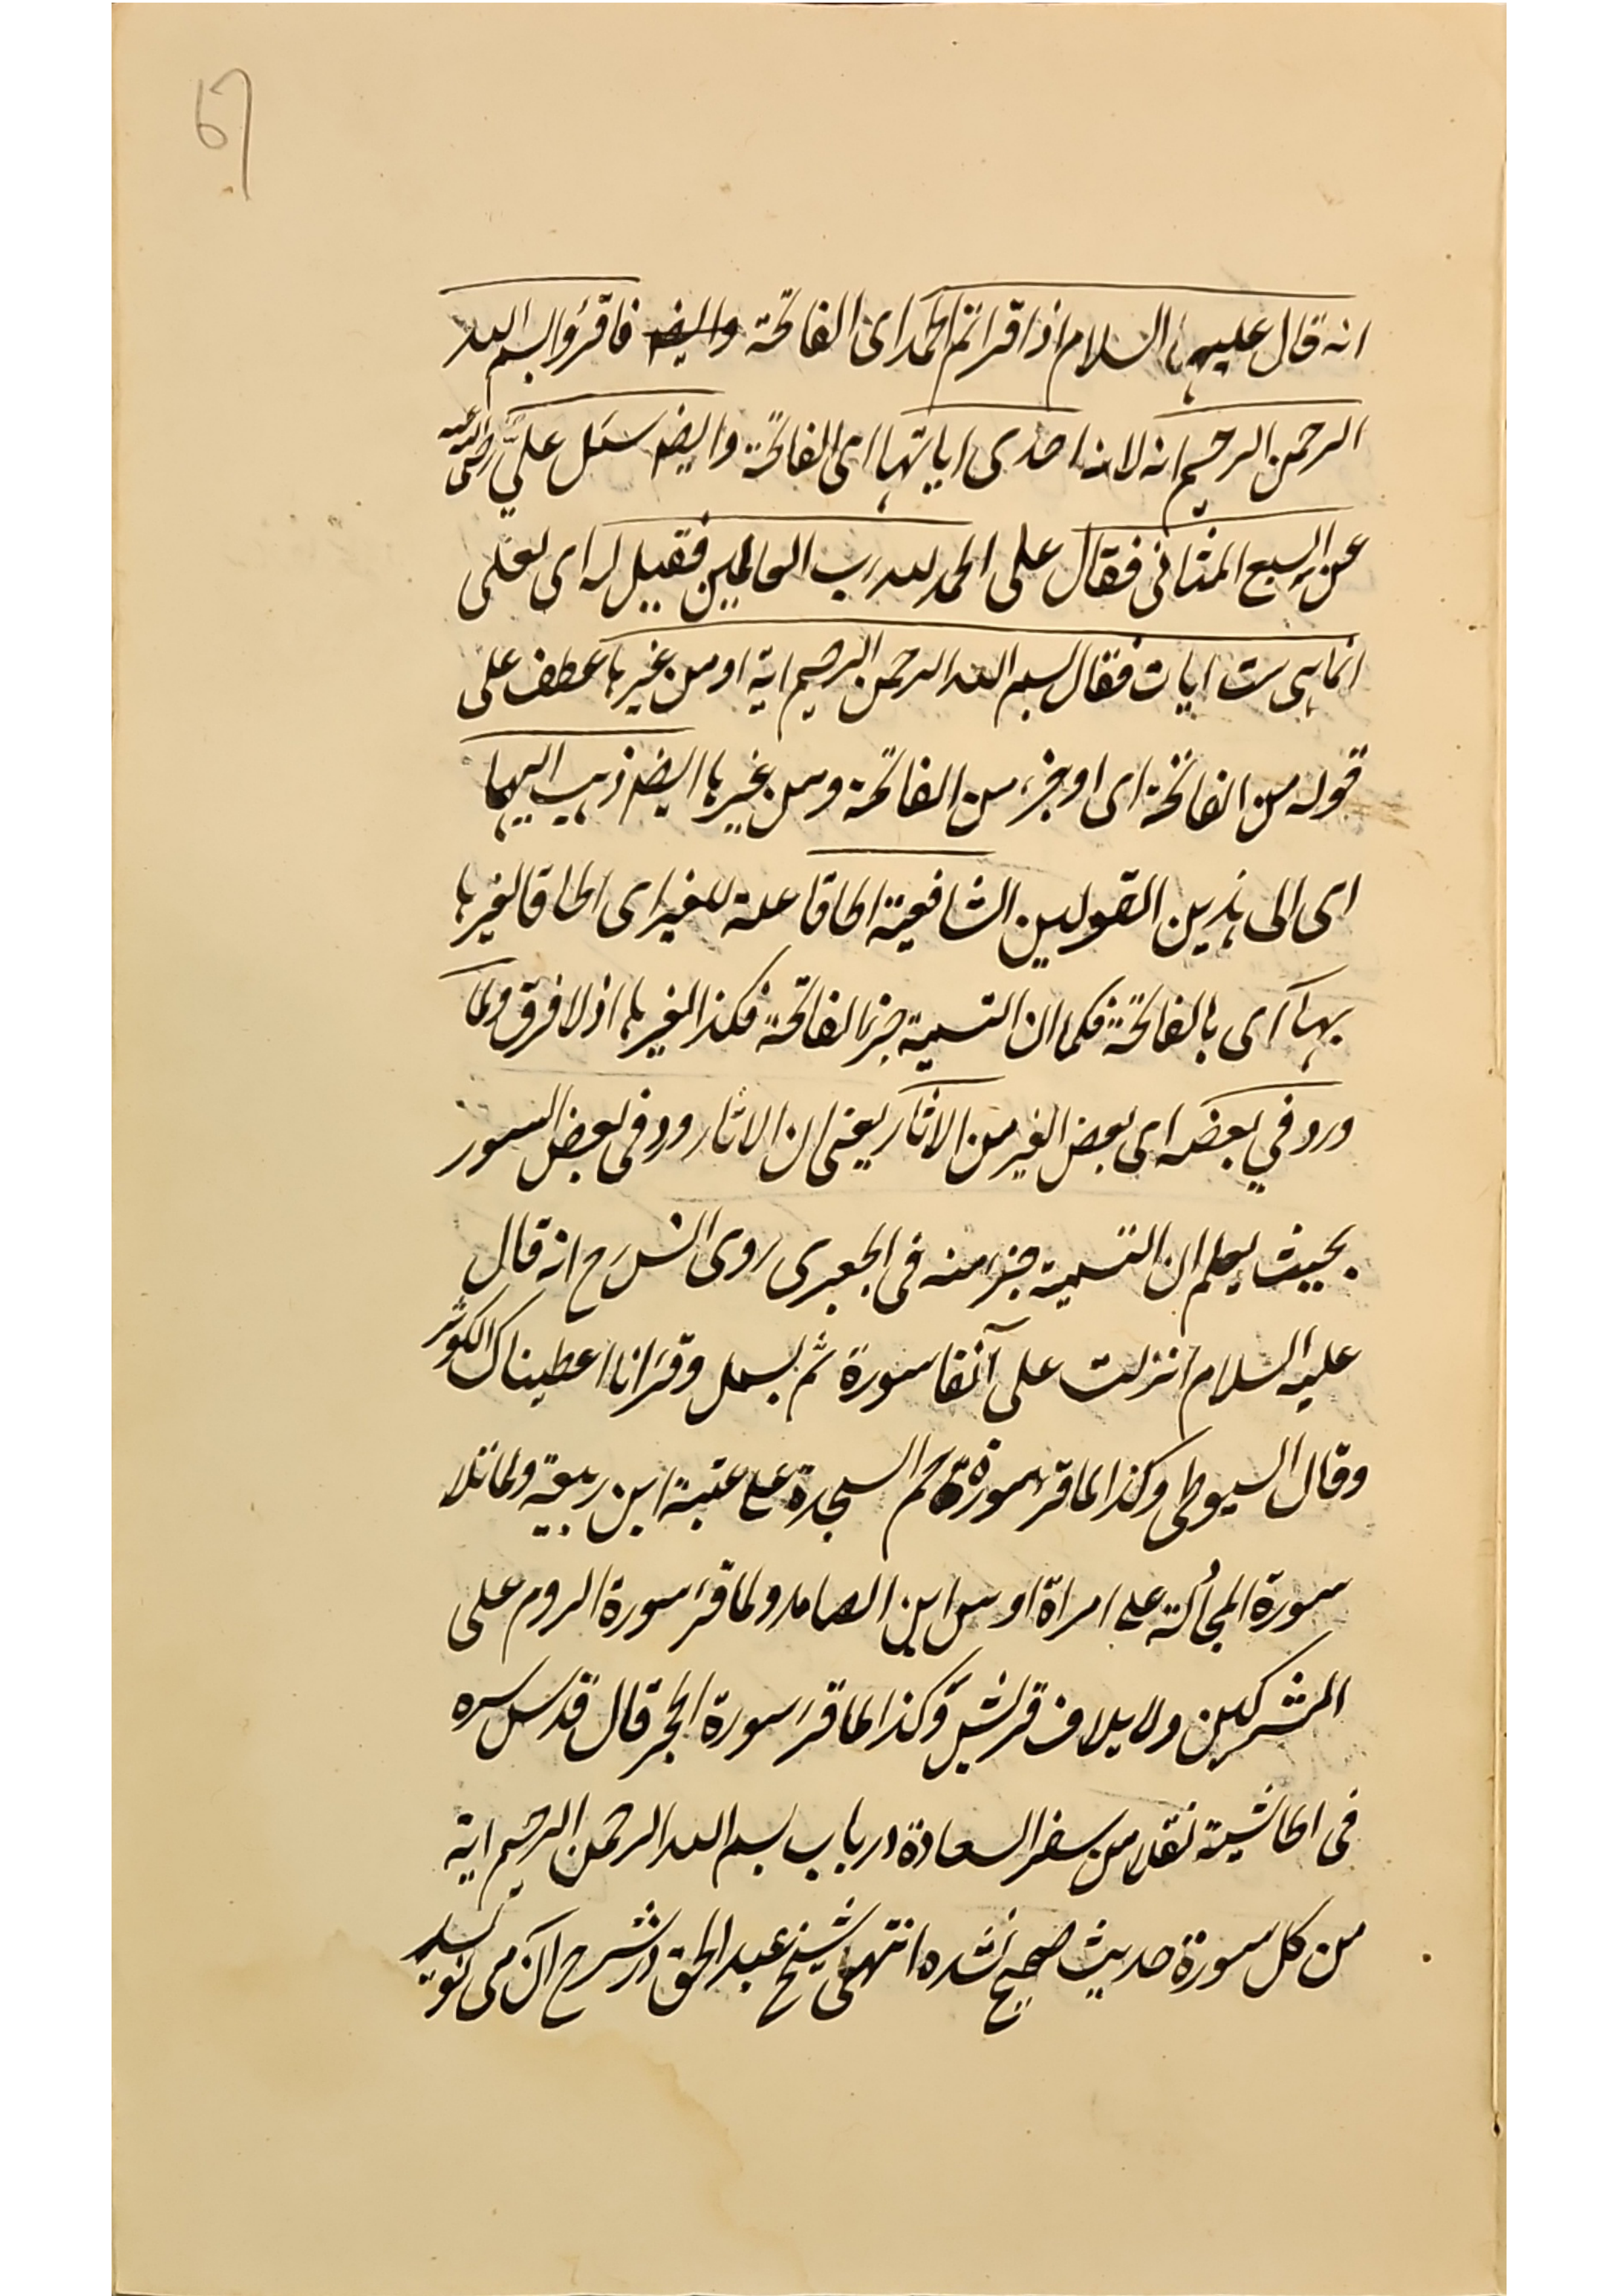 انه قال عليها السلام اذا قراتم الحمد اى الفاتحة وايضا فاقرؤا بسم الله
الرحمن الرحيم انه لانه احدى اياتها اى الفاتحة وايضا سئل علىّ رضى الله عنه
عن السبع المثانى فقال على الحمد لله رب العالمين فقيل له اى لعلى
انما هى ست ايات فقال بسم الله الرحمن الرحيم اية او من غيرها عطف على
قوله من الفاتحة اى او جزء من الفاتحة ومن غيرها ايضا ذهب اليهما
اى الى هذين القولين الشافعية الحاقا علة للغير اى الحاقا لغيرها
بها اى بالفاتحة فكما ان التسمية جزء الفاتحة فكذا لغيرها اذ لا فرق ولما
ورد في بعضه اى بعض الغير من الاثار يعنى ان الاثار ورد فى بعض السور
بحيث يعلم ان التسمية جزء منه فى الجعبرى روى انس رح انه قال
عليه السلام انزلت على آنفا سورة ثم بسمل وقرء انا اعطيناك الكوثر
وقال السيوطى وكذا لما قرء سورة حم السجدة على عتبة ابن ربيعة ولما تلا
سورة المجادلة على امراة اوس ابن الصامد ولما قرء سورة الروم على
المشركين ولايلاف قريش وكذا لما قرء سورة الحجر قال قدس سره
فى الحاشية نقلا من سفر السعادة در باب بسم الله الرحمن الرحيم اية
من كل سورة حديث صحيح نشده انتهى شيخ عبد الحق در شرح آن مى نويسد